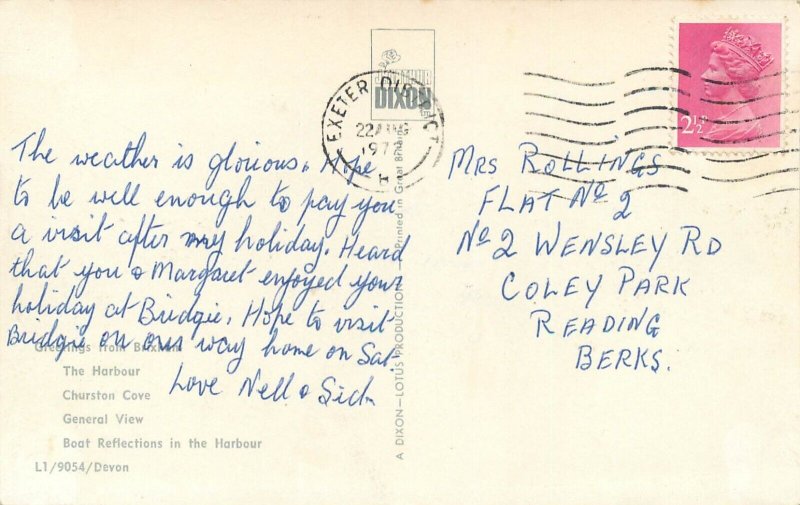 The weather is glorious. Hope
to be well enough to pay you
a visit after my holiday. Heard
that you & Margaret enjoyed your
holiday at Bridgie. Hope to visit
Bridgie on our way home on Sat.
Love Nell & Sid
Greetings from Brixham
The Harbour
Churston Cove
General View
Boat Reflections in the Harbour
L1/9054/Devon
DIXON
A DIXON—LOTUS PRODUCTION
Printed in Great Britain
EXETER DISTRICT
22 AUG
197
2½P
MRS ROLLINGS
FLAT No 2
No 2 WENSLEY RD
COLEY PARK
READING
BERKS.